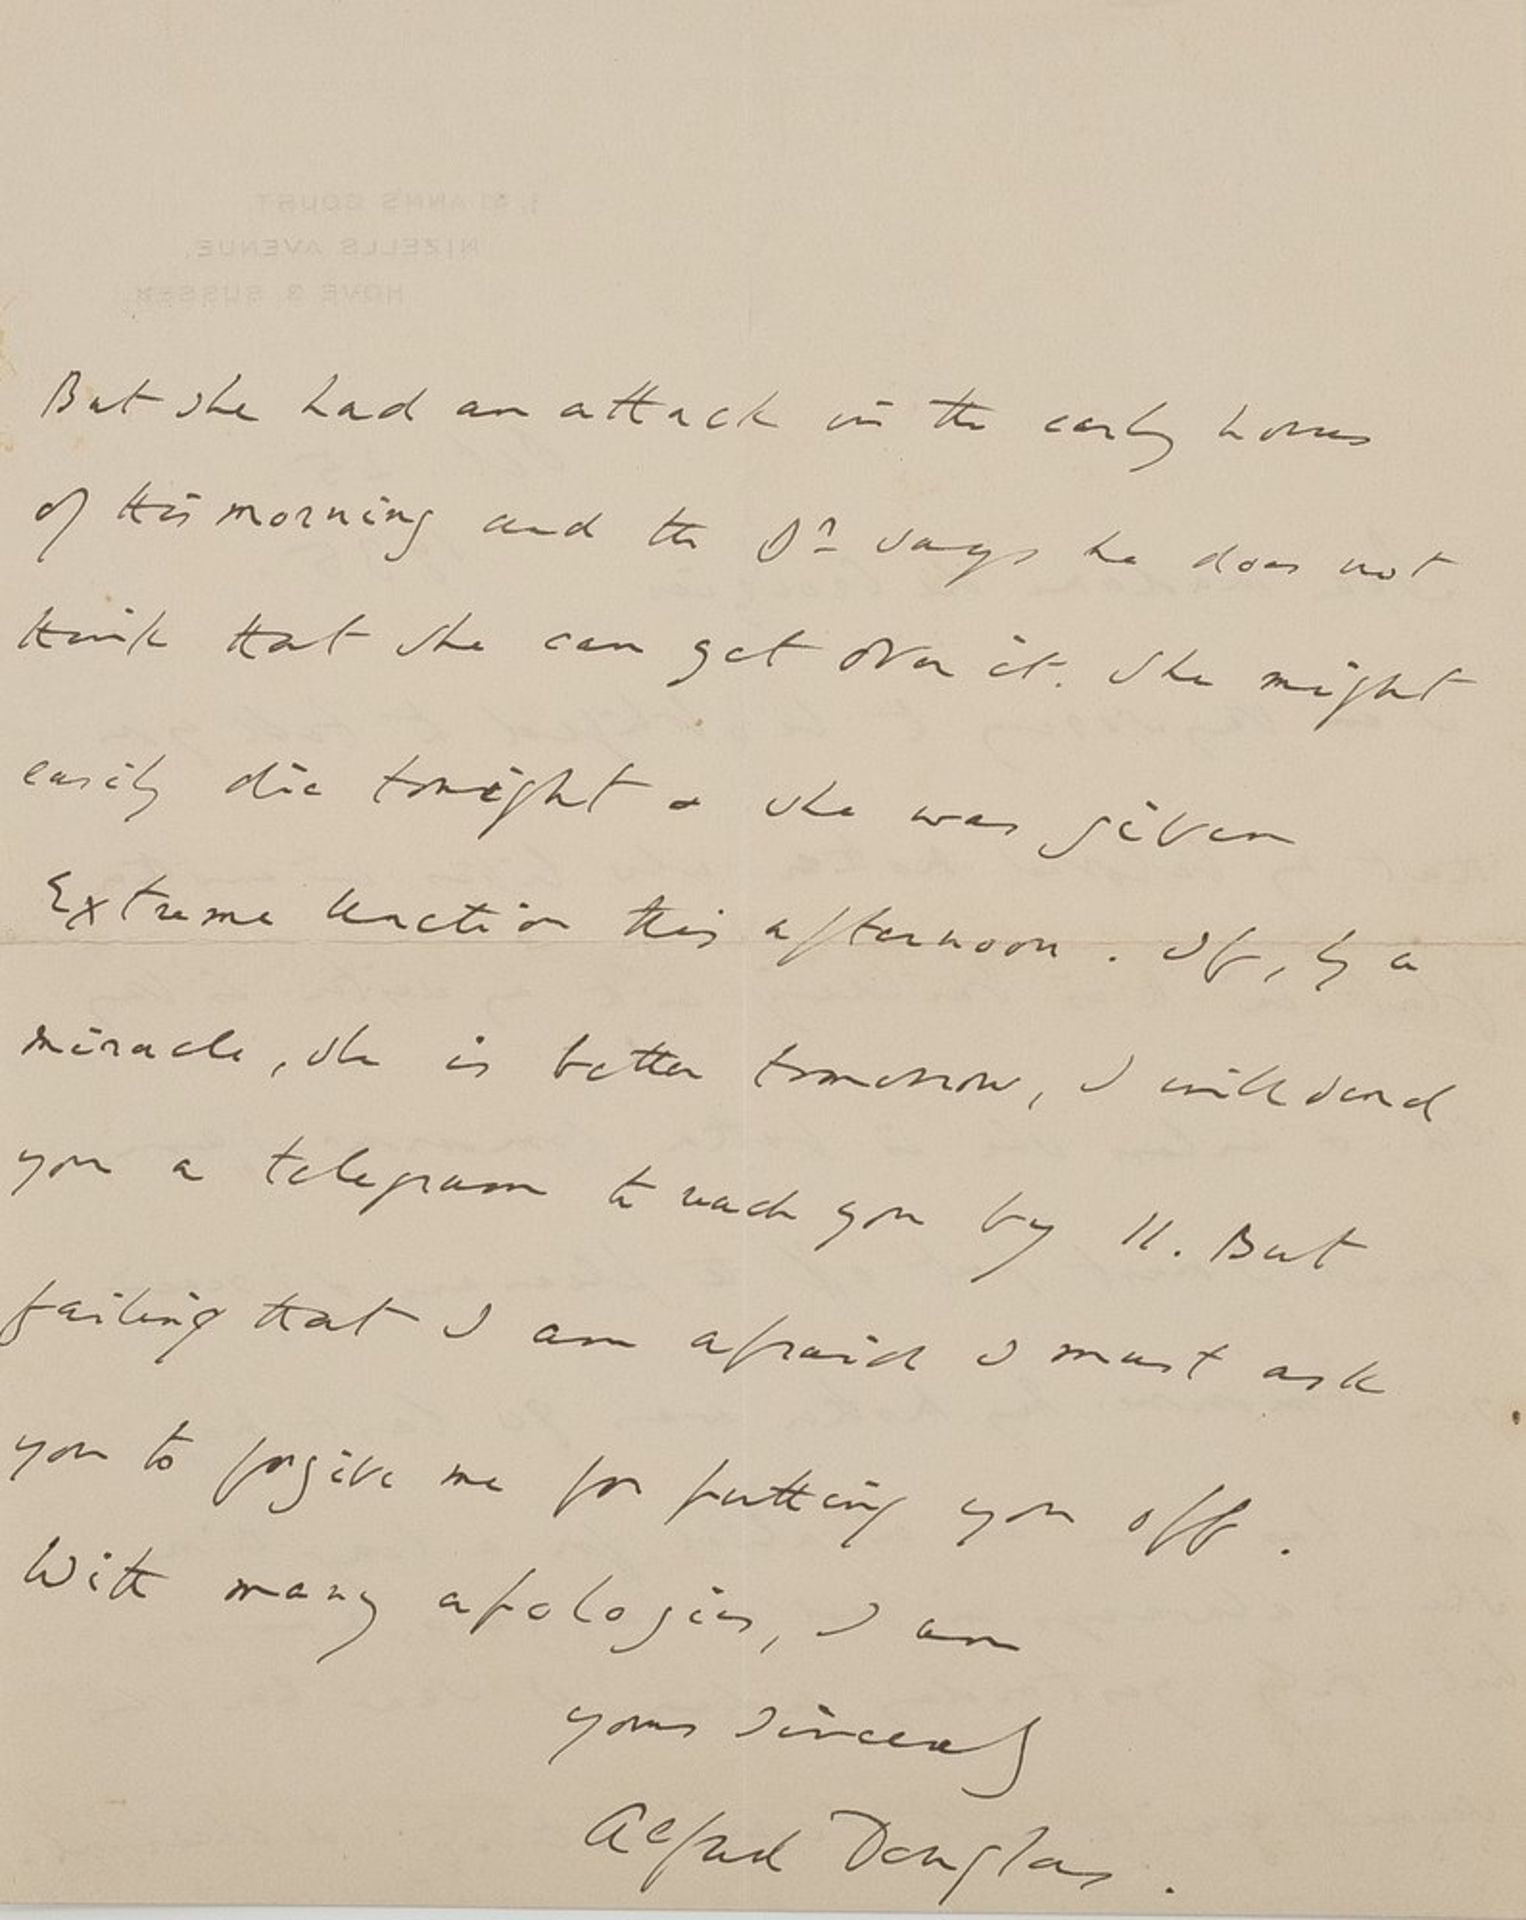 1, ST ANN'S COURT,
NIZELLS AVENUE,
HOVE 3, SUSSEX.
But she had an attack in the early hours
of this morning and the Dr says he does not
think that she can get over it. She might
easily die tonight & she was given
Extreme Unction this afternoon. If, by a
miracle, she is better tomorrow, I will send
you a telegram to reach you by 11. But
failing that I am afraid I must ask
you to forgive me for putting you off.
With many apologies, I am
yours sincerely
Alfred Douglas.